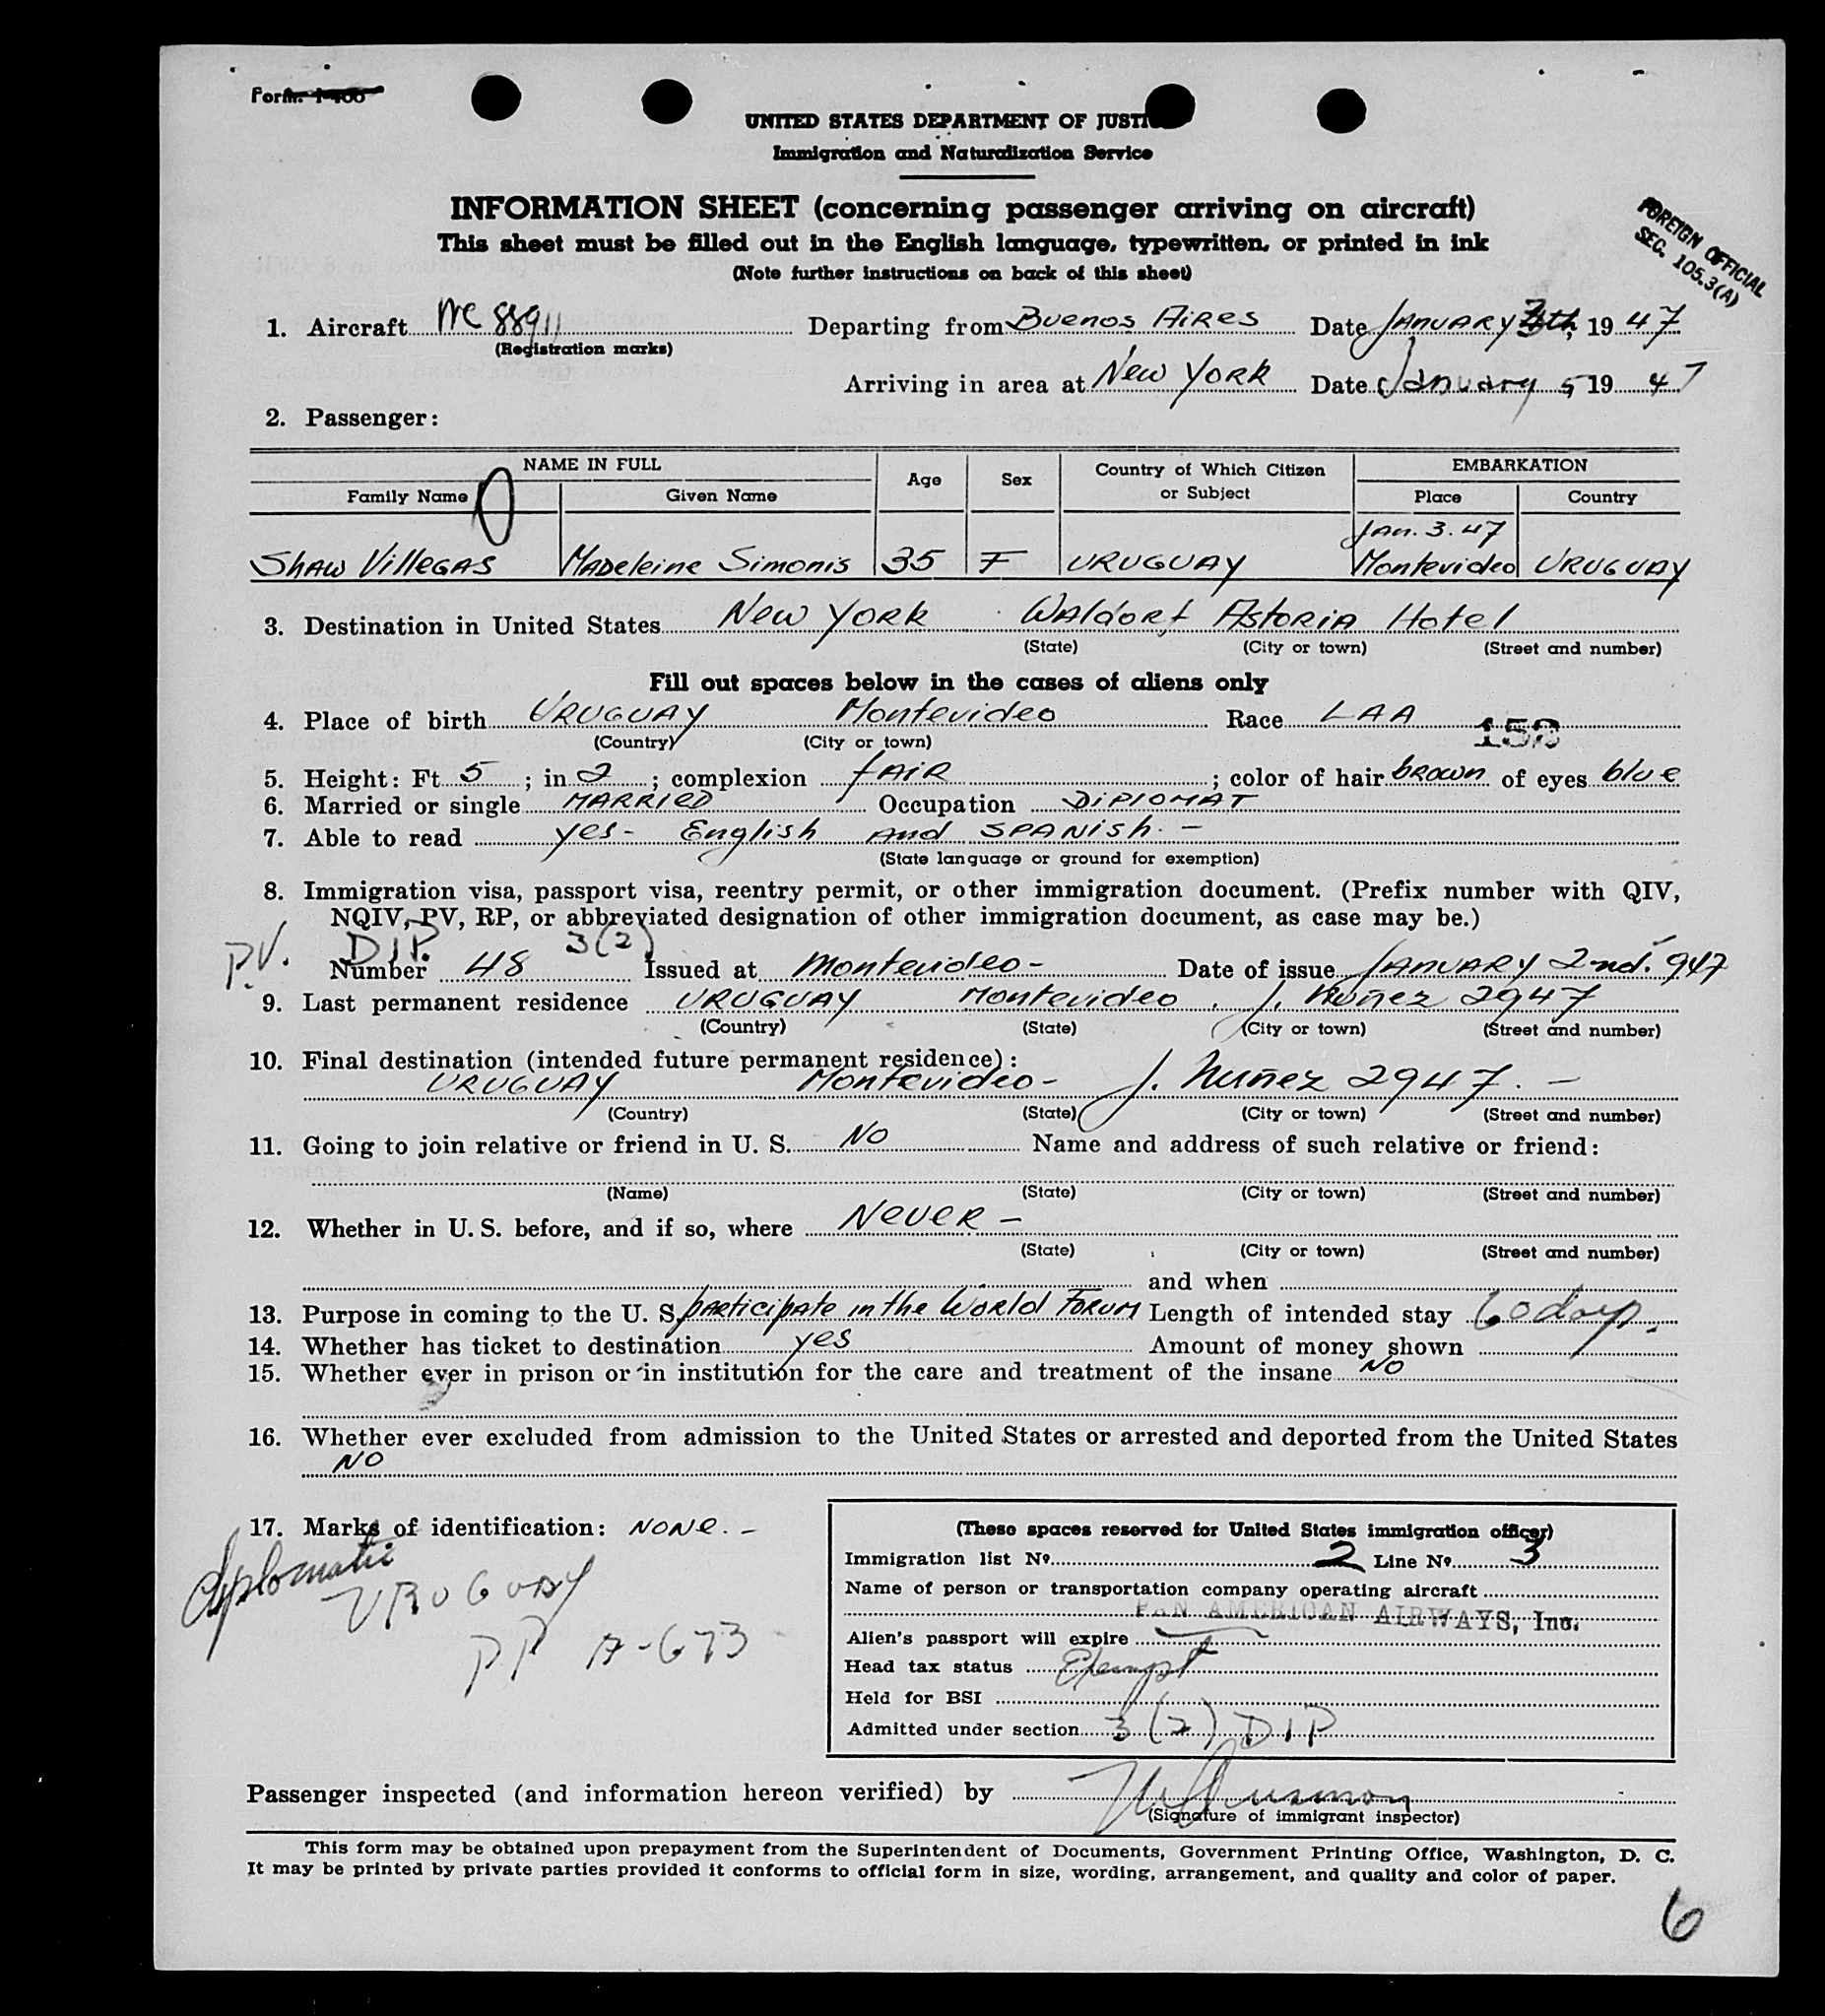 Form I-466
UNITED STATES DEPARTMENT OF JUSTI
Immigration and Naturalization Service
INFORMATION SHEET (concerning passenger arriving on aircraft)
This sheet must be filled out in the English language, typewritten, or printed in ink
(Note further instructions on back of this sheet)
FOREIGN OFFICIAL
SEC. 105.3(A)
1. Aircraft NC 88911 Departing from Buenos Aires Date January 3th, 19 47
(Registration marks)
Arriving in area at New York Date January 5 19 47
2. Passenger:
NAME IN FULL Age Sex Country of Which Citizen or Subject EMBARKATION
Family Name Given Name Place Country
Jan. 3. 47
Shaw Villegas Madeleine Simonis 35 F URUGUAY Montevideo URUGUAY
3. Destination in United States New York Waldorf Astoria Hotel
(State) (City or town) (Street and number)
Fill out spaces below in the cases of aliens only
4. Place of birth URUGUAY Montevideo Race LAA 158
(Country) (City or town)
5. Height: Ft 5 ; in 2 ; complexion fair ; color of hair brown of eyes blue
6. Married or single MARRIED Occupation DIPLOMAT
7. Able to read yes- English and SPANISH. -
(State language or ground for exemption)
8. Immigration visa, passport visa, reentry permit, or other immigration document. (Prefix number with QIV,
NQIV, PV, RP, or abbreviated designation of other immigration document, as case may be.)
P.V. DIP. 3(2)
Number 48 Issued at Montevideo- Date of issue January 2nd. 947
9. Last permanent residence URUGUAY Montevideo, J. Nuñez 2947
(Country) (State) (City or town) (Street and number)
10. Final destination (intended future permanent residence):
URUGUAY Montevideo- J. Nuñez 2947. -
(Country) (State) (City or town) (Street and number)
11. Going to join relative or friend in U. S. No Name and address of such relative or friend:
(Name) (State) (City or town) (Street and number)
12. Whether in U. S. before, and if so, where Never -
(State) (City or town) (Street and number)
and when
13. Purpose in coming to the U. S. participate in the World Forum Length of intended stay 60 days.
14. Whether has ticket to destination yes Amount of money shown
15. Whether ever in prison or in institution for the care and treatment of the insane NO
16. Whether ever excluded from admission to the United States or arrested and deported from the United States
NO
17. Marks of identification: NONE. -
Diplomatic
URUGUAY
PP A-673
(These spaces reserved for United States immigration officer)
Immigration list No. 2 Line No. 3
Name of person or transportation company operating aircraft
PAN AMERICAN AIRWAYS, Inc.
Alien's passport will expire
Head tax status Exempt
Held for BSI
Admitted under section 3(2) DIP
Passenger inspected (and information hereon verified) by
(Signature of immigrant inspector)
This form may be obtained upon prepayment from the Superintendent of Documents, Government Printing Office, Washington, D. C.
It may be printed by private parties provided it conforms to official form in size, wording, arrangement, and quality and color of paper.
6